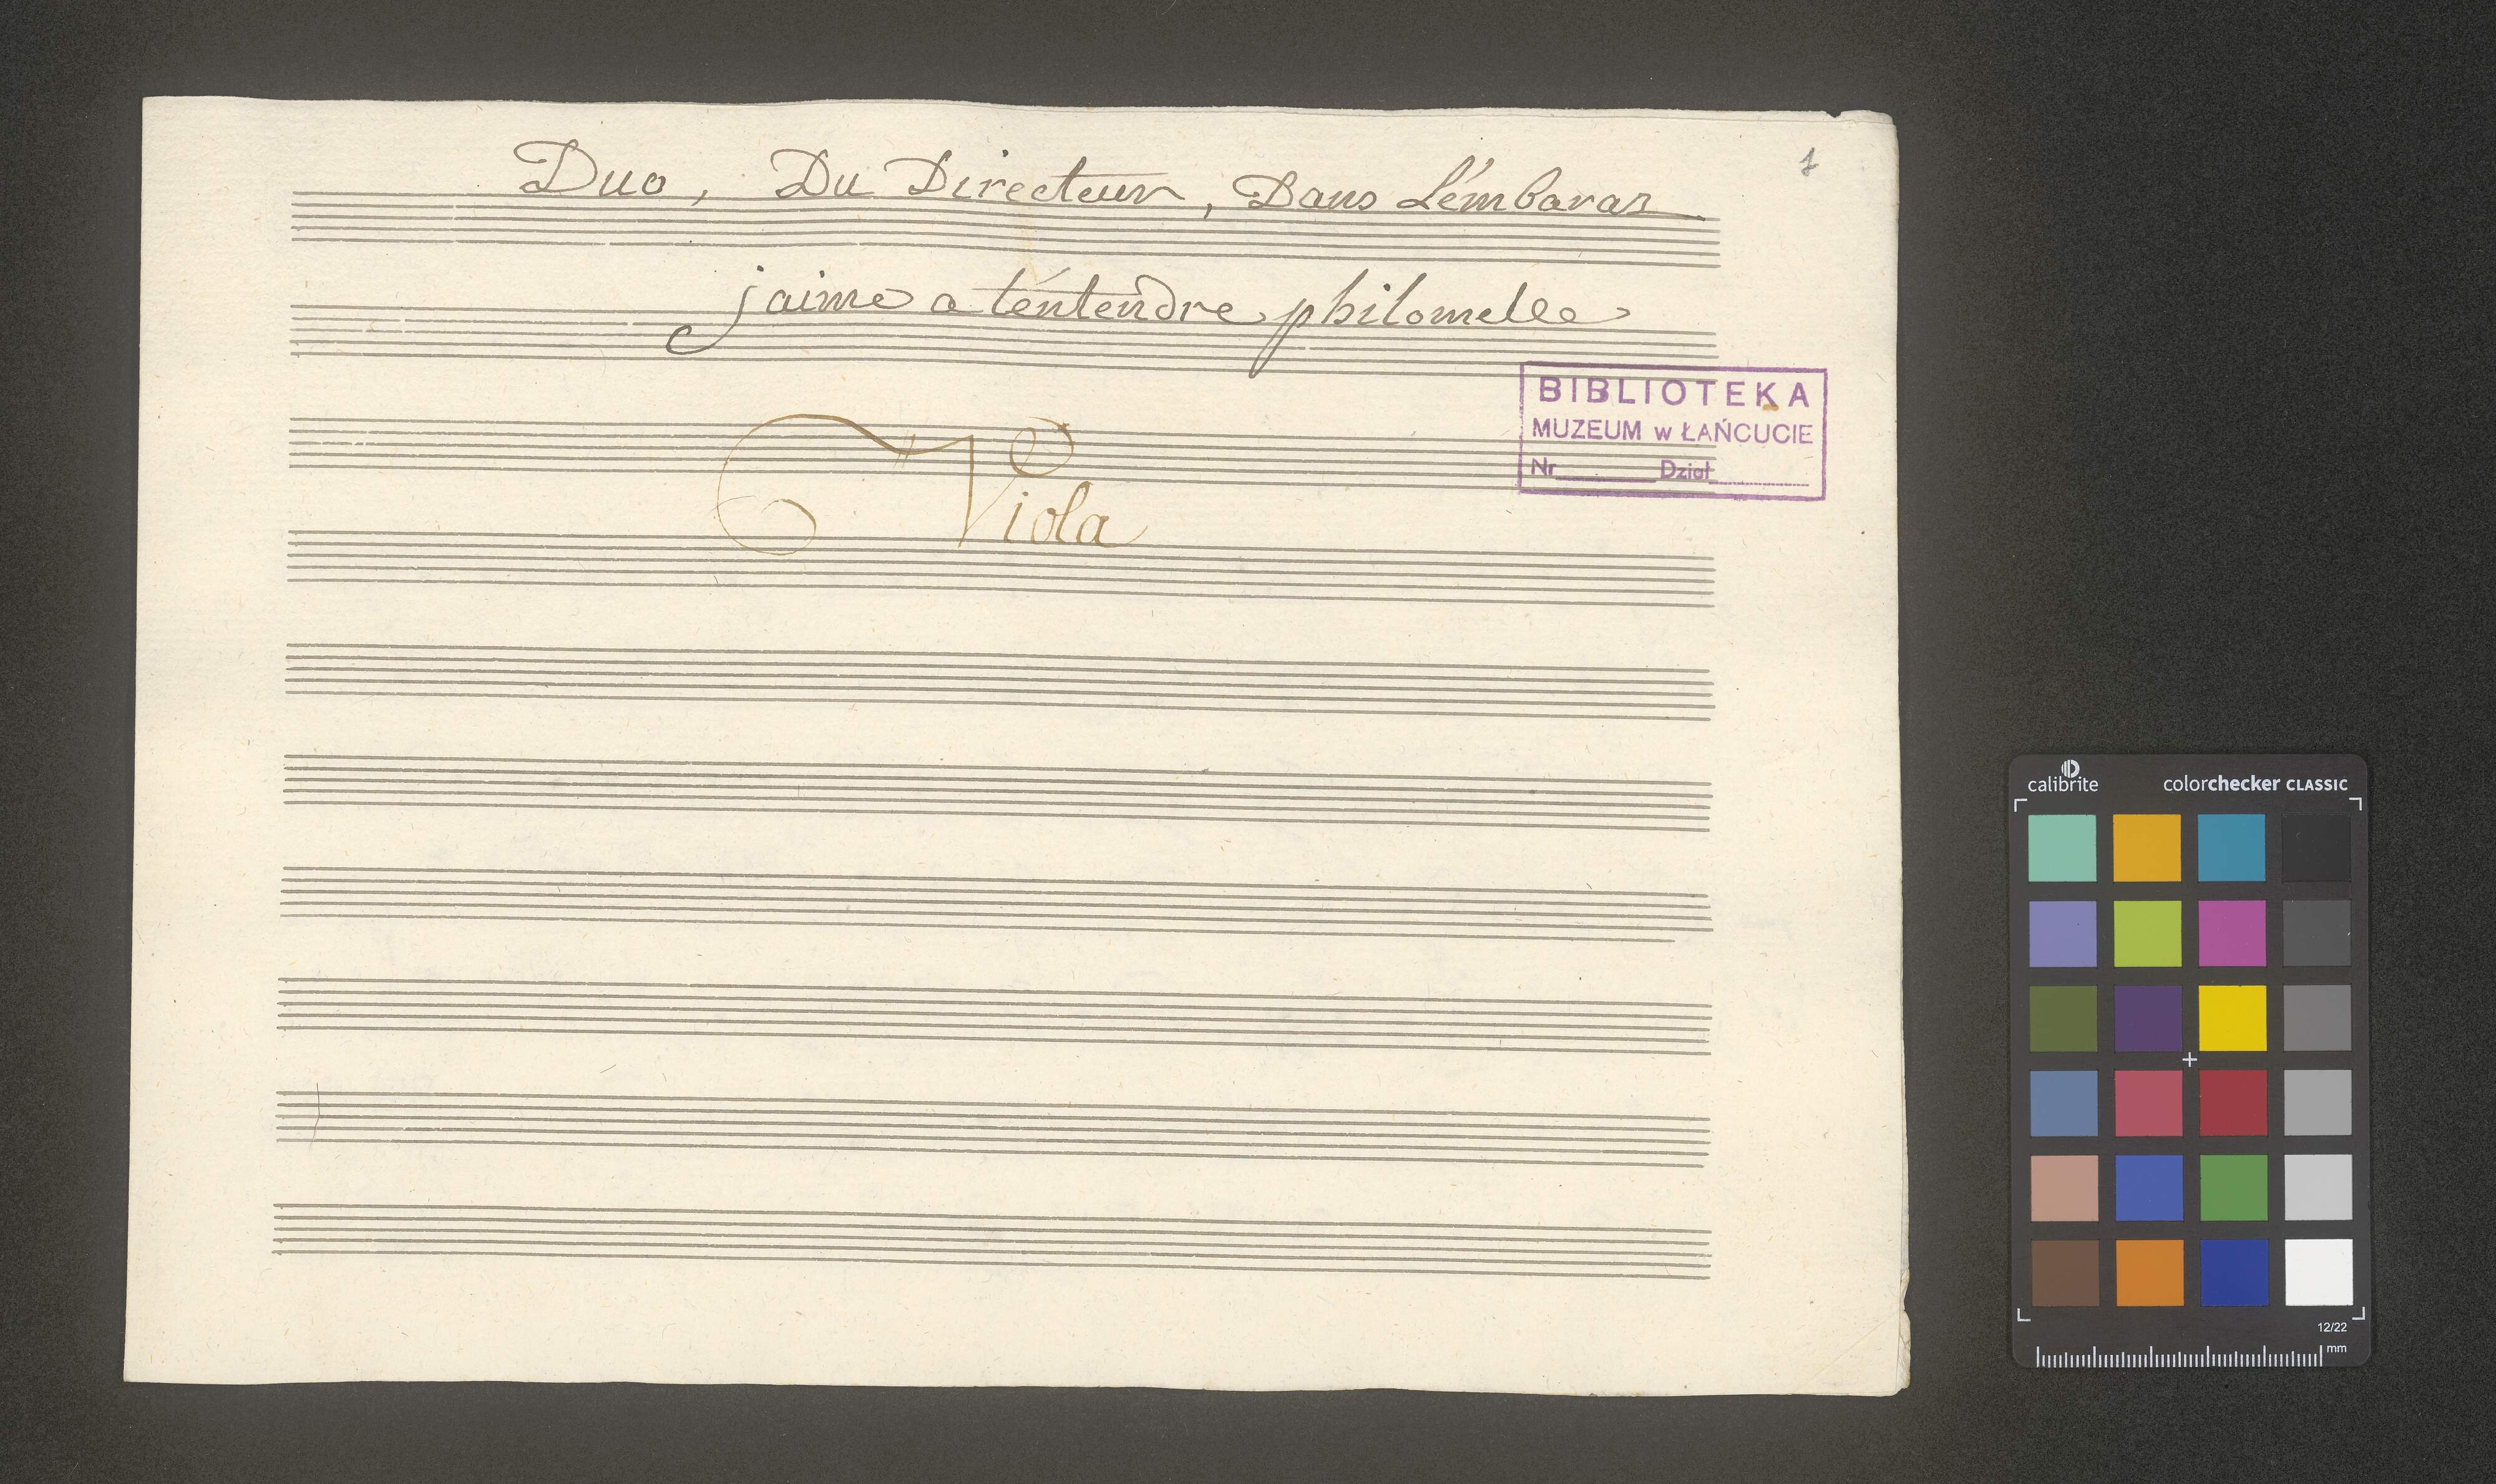 Duo, Du Directeur, Dans L'émbaras
1
jaime a téntendre philomelle
Viola
BIBLIOTEKA
MUZEUM w ŁAŃCUCIE
Nr Dział
calibrite colorchecker CLASSIC
12/22
mm